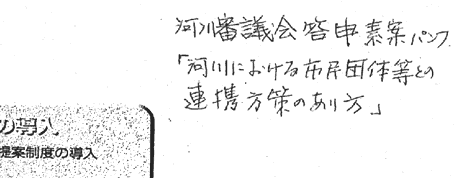 河川審議会答申素案パンフ
「河川における市民団体等との
連携方策のあり方」
の導入
提案制度の導入